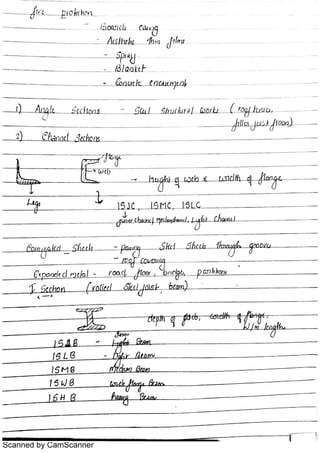 fire protection
- Concrete casing
- Aesthetic thin films
- Spray
- Blanket
- Concrete encasement
1) Angle Sections - Steel Structural works (roof truss,
filler joist floor)
2) Channel Sections
flange
web
→ height of web & width of flange
Legs
ISJC, ISMC, ISLC
Junior channel, Medium channel, Light channel
Corrugated Sheets - passing Steel Sheets through grooves
- roof covering
Expanded metal - road, floor, bridge, partitions
I Section (rolled Steel joist, beam)
depth of web, width of flange,
W/m length
ISJB - Junior Beam
ISLB - Light Beam
ISMB medium Beam
ISWB wide flange Beam
ISHB heavy Beam
Scanned by CamScanner